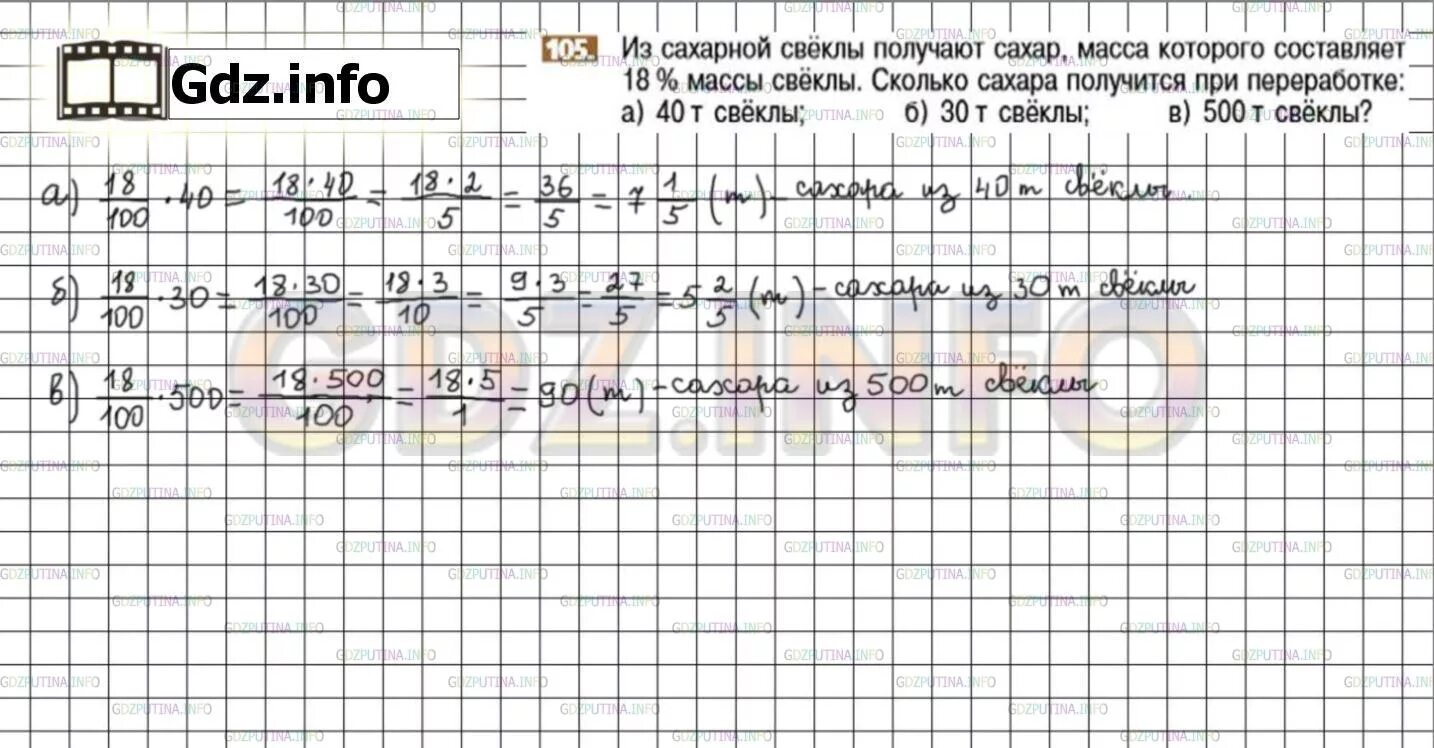 Gdz.info
105. Из сахарной свёклы получают сахар, масса которого составляет
18 % массы свёклы. Сколько сахара получится при переработке:
а) 40 т свёклы; б) 30 т свёклы; в) 500 т свёклы?
а) 18/100 · 40 = 18·40/100 = 18·2/5 = 36/5 = 7 1/5 (т) - сахара из 40 т свёклы.
б) 18/100 · 30 = 18·30/100 = 18·3/10 = 9·3/5 = 27/5 = 5 2/5 (т) - сахара из 30 т свёклы
в) 18/100 · 500 = 18·500/100 = 18·5/1 = 90 (т) - сахара из 500 т свёклы
GDZ.INFO
GDZPUTINA.INFO